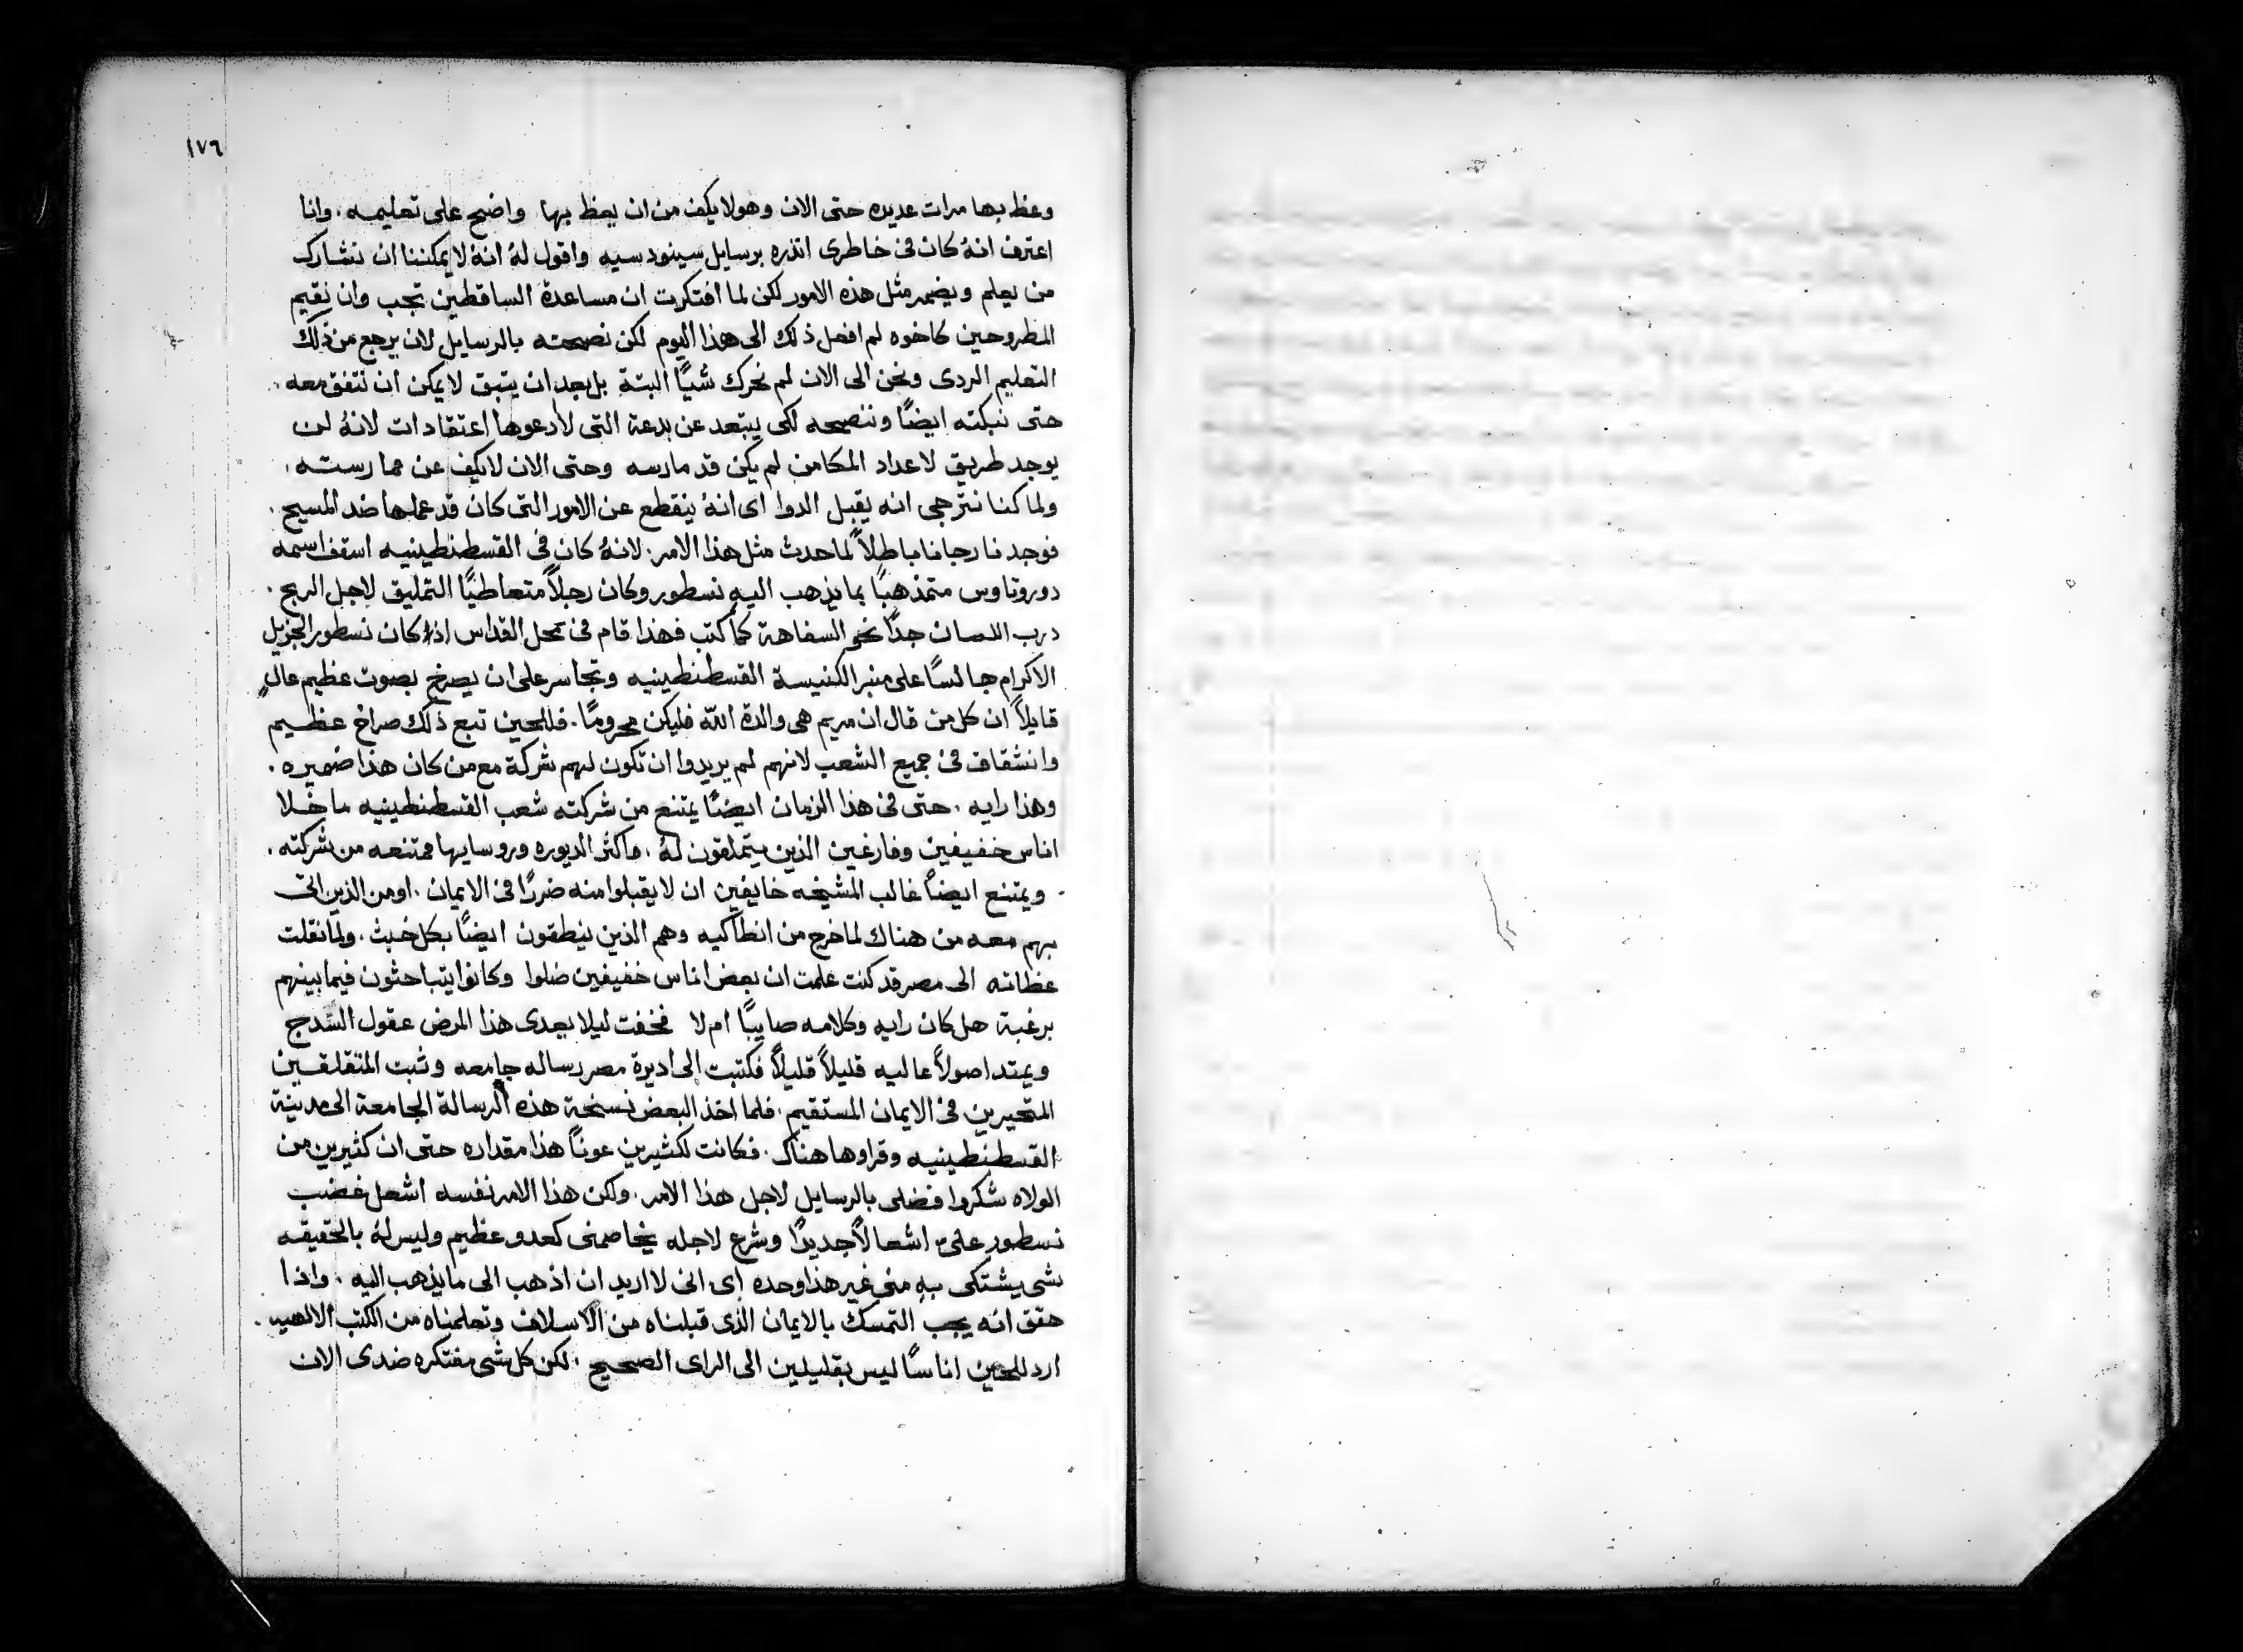 ١٧٦
وعظ بها مرات عديده حتى الان وهو لا يكف من ان يعظ بها واضح على تعليمه. وانا
اعترف انهُ كان في خاطرى انذره برسايل سينودسيه واقول لهُ انهُ لا يمكننا ان نشارك
من يعلم ويضمر مثل هذه الامور لكن لما افتكرت ان مساعدة الساقطين تجب وان نقيم
المطروحين كاخوه لم افعل ذلك الى هذا اليوم لكن نصحته بالرسايل لان يرجع من ذلك
التعليم الردى ونحن الى الان لم نحرك شيًا البتة بل بعد ان يتبق لا يمكن ان نتفق معه.
حتى نبكته ايضًا وننصحه لكى يبتعد عن بدعة التى لا ادعوها اعتقادات لانهُ لن
يوجد طريق لاعداد المكامن لم يكن قد مارسه وحتى الان لا يكف عن ممارسته.
ولما كنا نترجى انه يقبل الدوا اى انهُ ينقطع عن الامور التى كان قد عملها ضد المسيح.
فوجدنا رجانا باطلاً لما حدث مثل هذا الامر. لانهُ كان في القسطنطينيه اسقف اسمه
دوروتاوس متمذهبًا بما يذهب اليه نسطور وكان رجلاً متعاطيًا التمليق لاجل الربح.
درب اللسان جدًا نحو السفاهة كما كتب فهذا قام في محل القداس اذ كان نسطور الجزيل
الاكرام جالسًا على منبر الكنيسة القسطنطينيه وتجاسر على ان يصرخ بصوت عظيم عالٍ
قايلاً ان كل من قال ان مريم هي والدة الله فليكن محرومًا. فللحين تبع ذلك صراخ عظيم
وانشقاق في جميع الشعب لانهم لم يريدوا ان تكون لهم شركة مع من كان هذا ضميره.
وهذا رايه. حتى في هذا الزمان ايضًا يمتنع من شركته شعب القسطنطينيه ما خلا
اناس خفيفين وفارغين الذين يتملقون لهُ. واكثر الديوره وروسايها ممتنعه من شركته.
ويمتنع ايضًا غالب المشيخه خايفين ان لا يقبلوا منه ضررًا في الايمان. او من الذين اتى
بهم معه من هناك لما خرج من انطاكيه وهم الذين ينطقون ايضًا بكل خبث. ولما نقلت
عظاته الى مصر قد كنت علمت ان بعض اناس خفيفين ضلوا وكانوا يتباحثون فيما بينهم
برغبة هل كان رايه وكلامه صايبًا ام لا فخفت ليلا يعدى هذا المرض عقول السدج
ويمتد اصولاً عاليه قليلاً قليلاً فكتبت الى اديرة مصر رساله جامعه وثبت المتقلقين
المتحيرين في الايمان المستقيم. فلما اخذ البعض نسخة هذه الرسالة الجامعة الى مدينة
القسطنطينيه وقراوها هناك. فكانت لكثيرين عونًا هذا مقداره حتى ان كثيرين من
الولاه شكروا فضلى بالرسايل لاجل هذا الامر. ولكن هذا الامر نفسه اشعل غضب
نسطور علىّ اشعالاً جديدًا وشرع لاجله يخاصمنى كعدو عظيم وليس لهُ بالحقيقه
شى يشتكى به مني غير هذا وحده اى انى لا اريد ان اذهب الى ما يذهب اليه. واذا
حقق انه يجب التمسك بالايمان الذى قبلناه من الاسلاف وتعلمناه من الكتب الالهيه.
ارد للحين اناسًا ليس بقليلين الى الراى الصحيح. لكن كل شى مفتكره ضدى الان